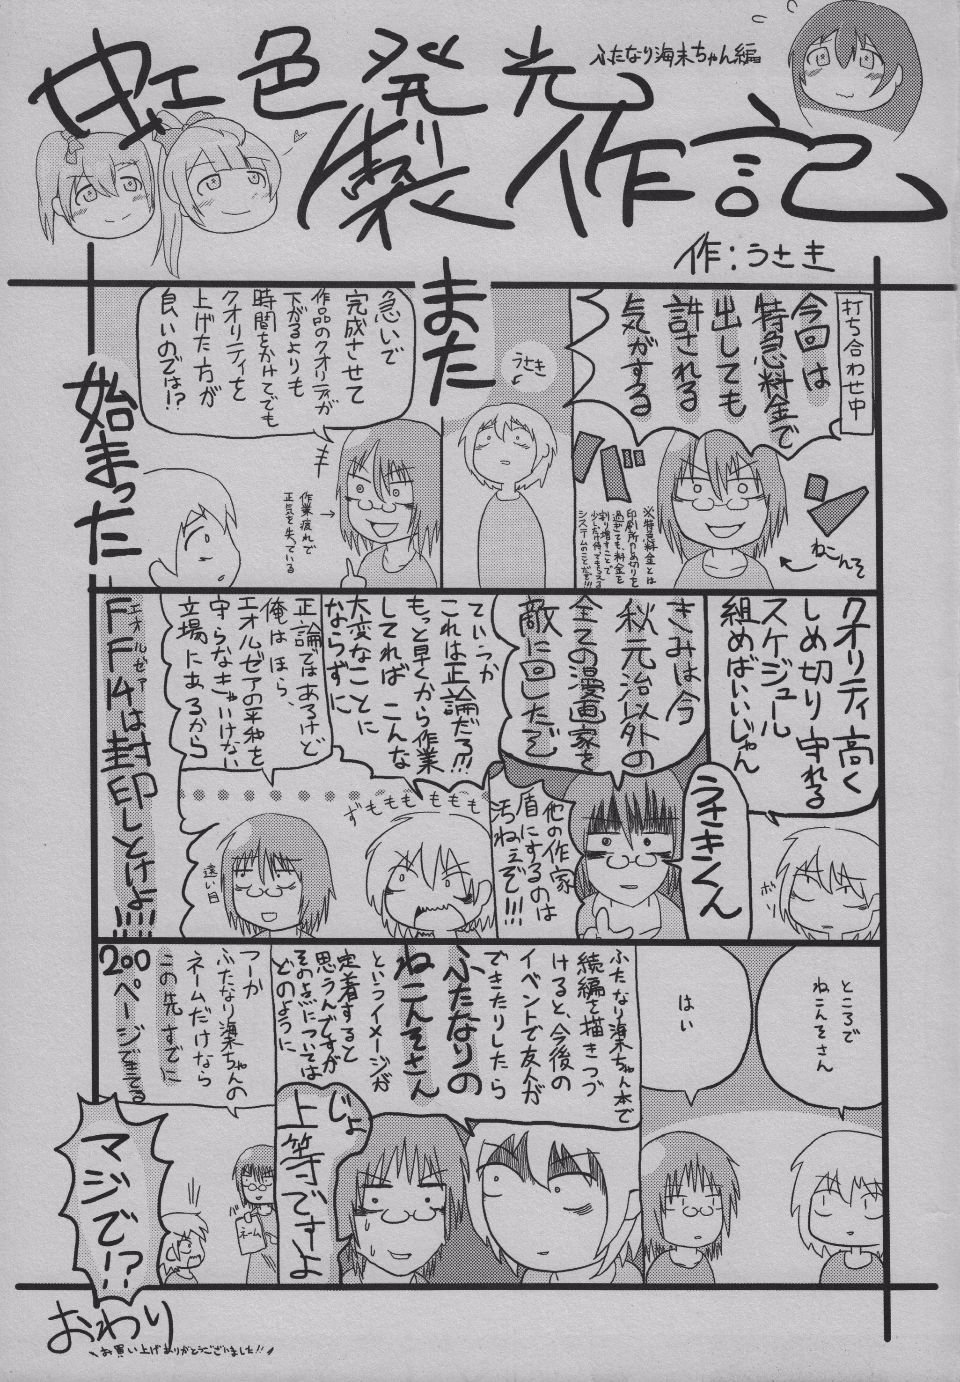 虹色発光
製作記
ふたなり海未ちゃん編
作:うさき
打ち合わせ中
今回は
特急料金で
出しても
許される
気がする
バ
バ
ーン
ねこんそ
※特急料金とは
印刷所の〆切りを
過ぎても料金を
割り増すことで
少しだけ待ってもらえる
システムのことだぞ!!!
うさき
また
急いで
完成させて
作品のクオリティが
下がるよりも
時間をかけてでも
クオリティを
上げた方が
良いのでは!?
作業疲れで
正気を失っている
始まった
クオリティ高く
しめ切り守れる
スケジュール
組めばいいじゃん
ボソ
うさきくん
きみは今
秋元治以外の
全ての漫画家を
敵に回したぞ
他の作家
盾にするのは
汚ねぇぞ!!!
ていうか
これは正論だろ!!!
もっと早くから作業
してれば こんな
大変なことに
ならずに
ずももももももも
正論ではあるけど
俺はほら、
エオルゼアの平和を
守らなきゃいけない
立場にあるから
遠い目
エオルゼア
FF14は封印しとけよ!!!!!
ところで
ねこんそさん
はい
ふたなり海未ちゃん本で
続編を描きつづ
けると、今後の
イベントで友人が
できたりしたら
ふたなりの
ねこんそさん
というイメージが
定着すると
思うんですが
そのよぶについては
どのように
じょ
上等ですよ
つーか
ふたなり海未ちゃんの
ネームだけなら
この先すでに
200ページできてる
ネーム
マジで!?
おわり
お買い上げありがとうございました!!